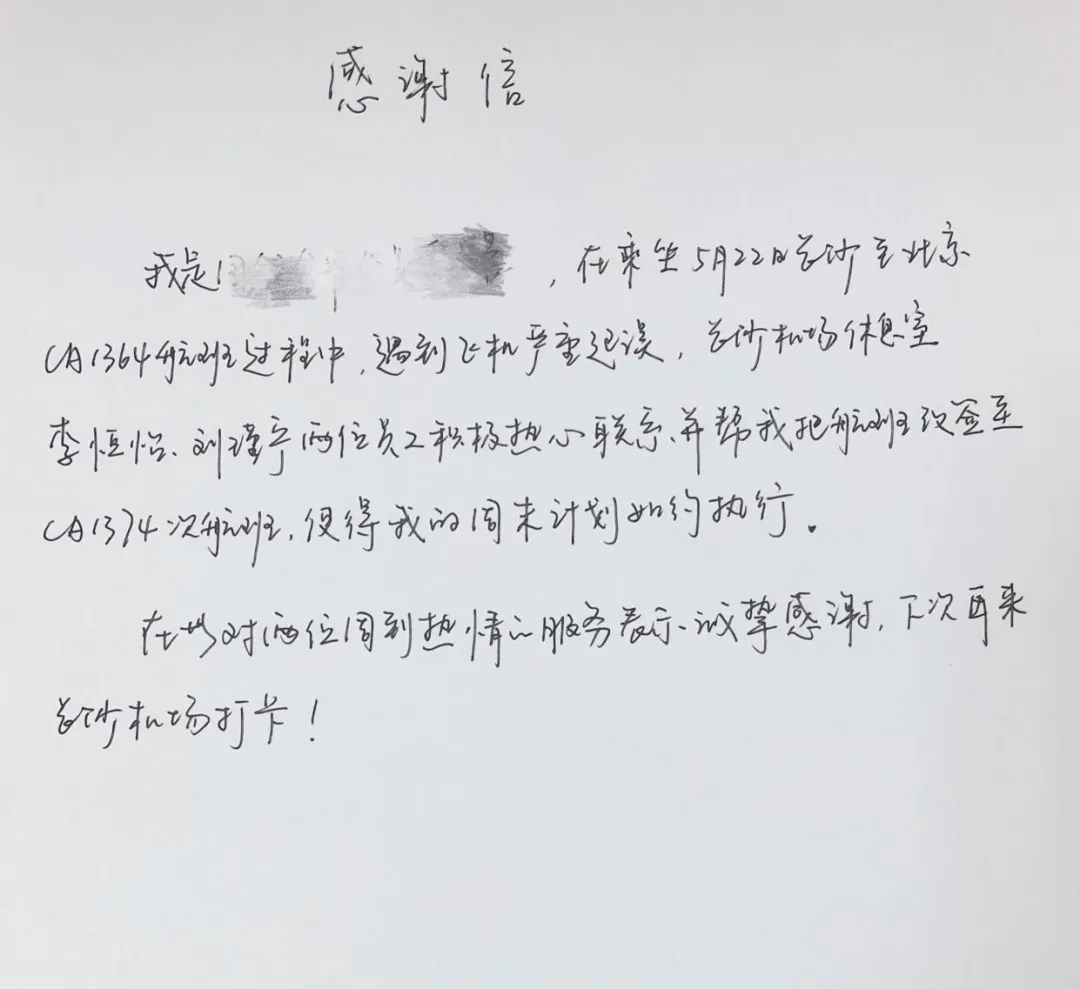 感谢信
我是，在乘坐5月22日长沙至北京
CA1364航班过程中，遇到飞机严重延误，长沙机场休息室
李恒怡、刘瑾宁两位员工积极热心联系、并帮我把航班改签至
CA1374次航班，使得我的周末计划如约执行。
在此对两位周到热情的服务表示诚挚感谢，下次再来
长沙机场打卡！